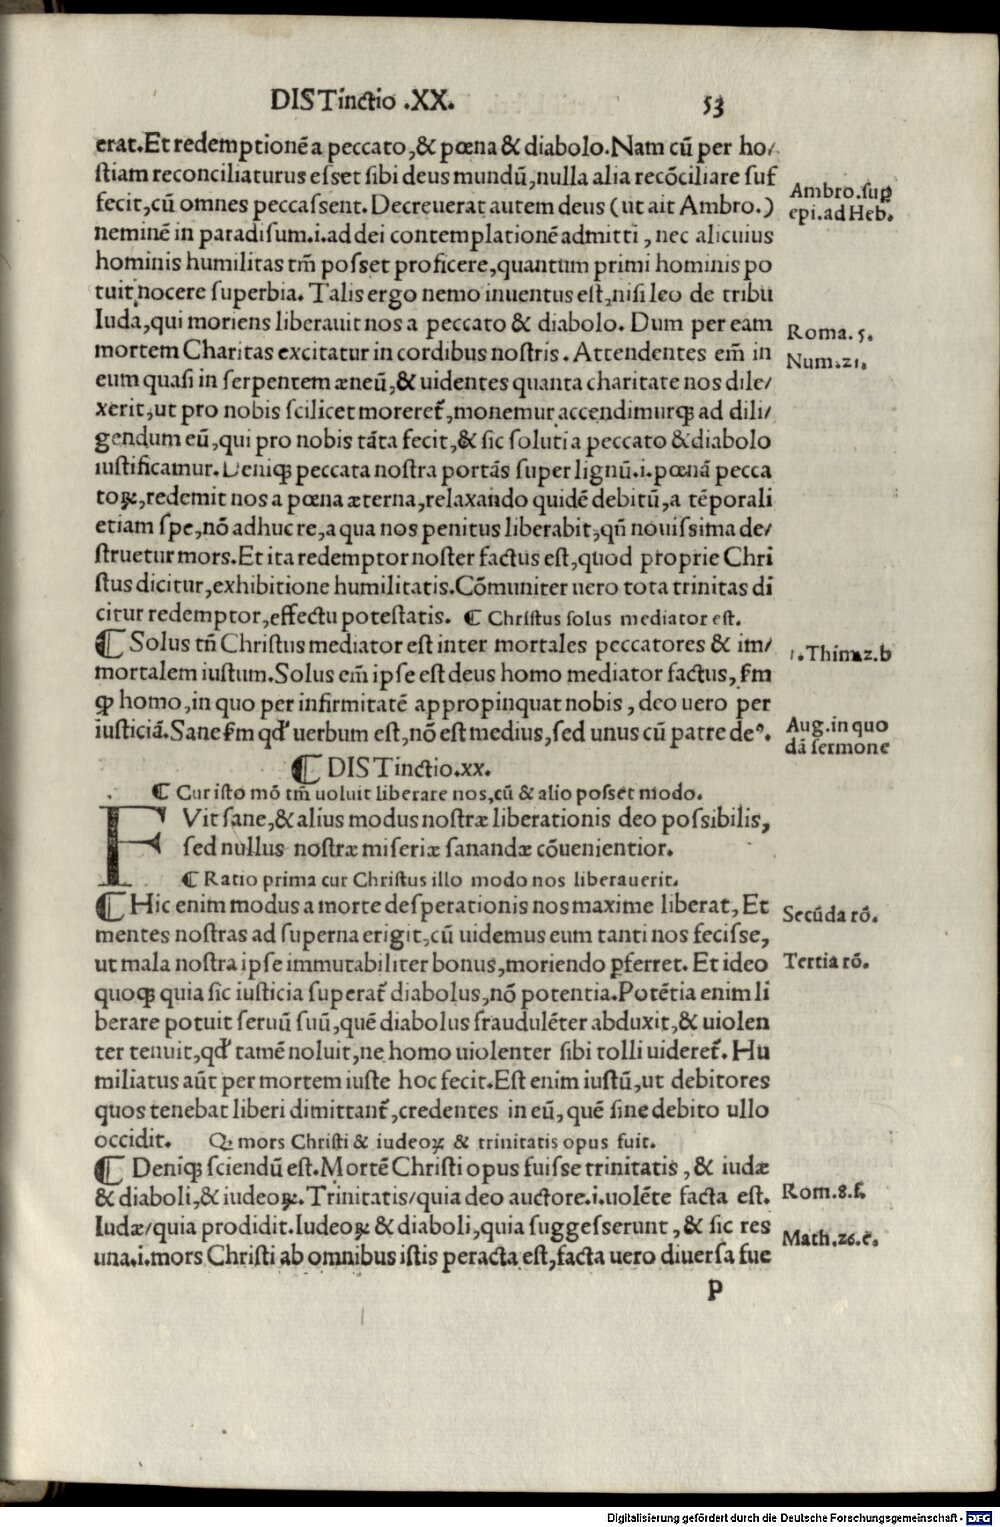 DISTinctio .XX. 53
erat.Et redemptionē a peccato,& pœna & diabolo.Nam cū per ho/
stiam reconciliaturus esset sibi deus mundū,nulla alia recōciliare suf
fecit,cū omnes peccassent.Decreuerat autem deus (ut ait Ambro.)
Ambro.sup
epi.ad Heb.
neminē in paradisum.i.ad dei contemplationē admitti, nec alicuius
hominis humilitas tm̄ posset proficere,quantum primi hominis po
tuit nocere superbia. Talis ergo nemo inuentus est,nisi leo de tribu
Iuda,qui moriens liberauit nos a peccato & diabolo. Dum per eam
Roma. 5.
mortem Charitas excitatur in cordibus nostris. Attendentes em̄ in
Num.21.
eum quasi in serpentem æneū,& uidentes quanta charitate nos dile/
xerit,ut pro nobis scilicet moreret᷑,monemur accendimurqꝫ ad dili/
gendum eū,qui pro nobis tāta fecit,& sic soluti a peccato & diabolo
iustificamur. Deniqꝫ peccata nostra portās super lignū.i.pœnā pecca
toꝝ,redemit nos a pœna æterna,relaxando quidē debitū,a tēporali
etiam spe,nō adhuc re,a qua nos penitus liberabit,qn̄ nouissima de/
struetur mors.Et ita redemptor noster factus est,quod proprie Chri
stus dicitur,exhibitione humilitatis.Cōmuniter uero tota trinitas di
citur redemptor,effectu potestatis. ¶ Christus solus mediator est.
¶ Solus tn̄ Christus mediator est inter mortales peccatores & im/
1.Thim.2.b
mortalem iustum.Solus em̄ ipse est deus homo mediator factus, ẜm
ꝙ homo,in quo per infirmitatē appropinquat nobis, deo uero per
iusticiā.Sane ẜm qđ uerbum est,nō est medius,sed unus cū patre deꝰ.
Aug.in quo
dā sermone
¶ DISTinctio.xx.
¶ Cur isto mō tm̄ uoluit liberare nos,cū & alio posset modo.
FVit sane,& alius modus nostræ liberationis deo possibilis,
sed nullus nostræ miseriæ sanandæ cōuenientior.
¶ Ratio prima cur Christus illo modo nos liberauerit.
¶ Hic enim modus a morte desperationis nos maxime liberat, Et
Secūda rō.
mentes nostras ad superna erigit,cū uidemus eum tanti nos fecisse,
ut mala nostra ipse immutabiliter bonus,moriendo ꝑferret. Et ideo
Tertia rō.
quoqꝫ quia sic iusticia superat᷑ diabolus,nō potentia.Potētia enim li
berare potuit seruū suū,quē diabolus fraudulēter abduxit,& uiolen
ter tenuit,qđ tamē noluit,ne homo uiolenter sibi tolli uideret᷑. Hu
miliatus aūt per mortem iuste hoc fecit.Est enim iustū,ut debitores
quos tenebat liberi dimittant᷑,credentes in eū, quē sine debito ullo
occidit. Q mors Christi & iudeoꝝ & trinitatis opus fuit.
¶ Deniqꝫ sciendū est.Mortē Christi opus fuisse trinitatis, & iudæ
& diaboli,& iudeoꝝ. Trinitatis/quia deo auctore.i.uolēte facta est.
Rom.8.f.
Iudæ/quia prodidit.Iudeoꝝ & diaboli,quia suggesserunt, & sic res
Math.26.e.
una.i.mors Christi ab omnibus istis peracta est,facta uero diuersa fue
p
Digitalisierung gefördert durch die Deutsche Forschungsgemeinschaft - DFG